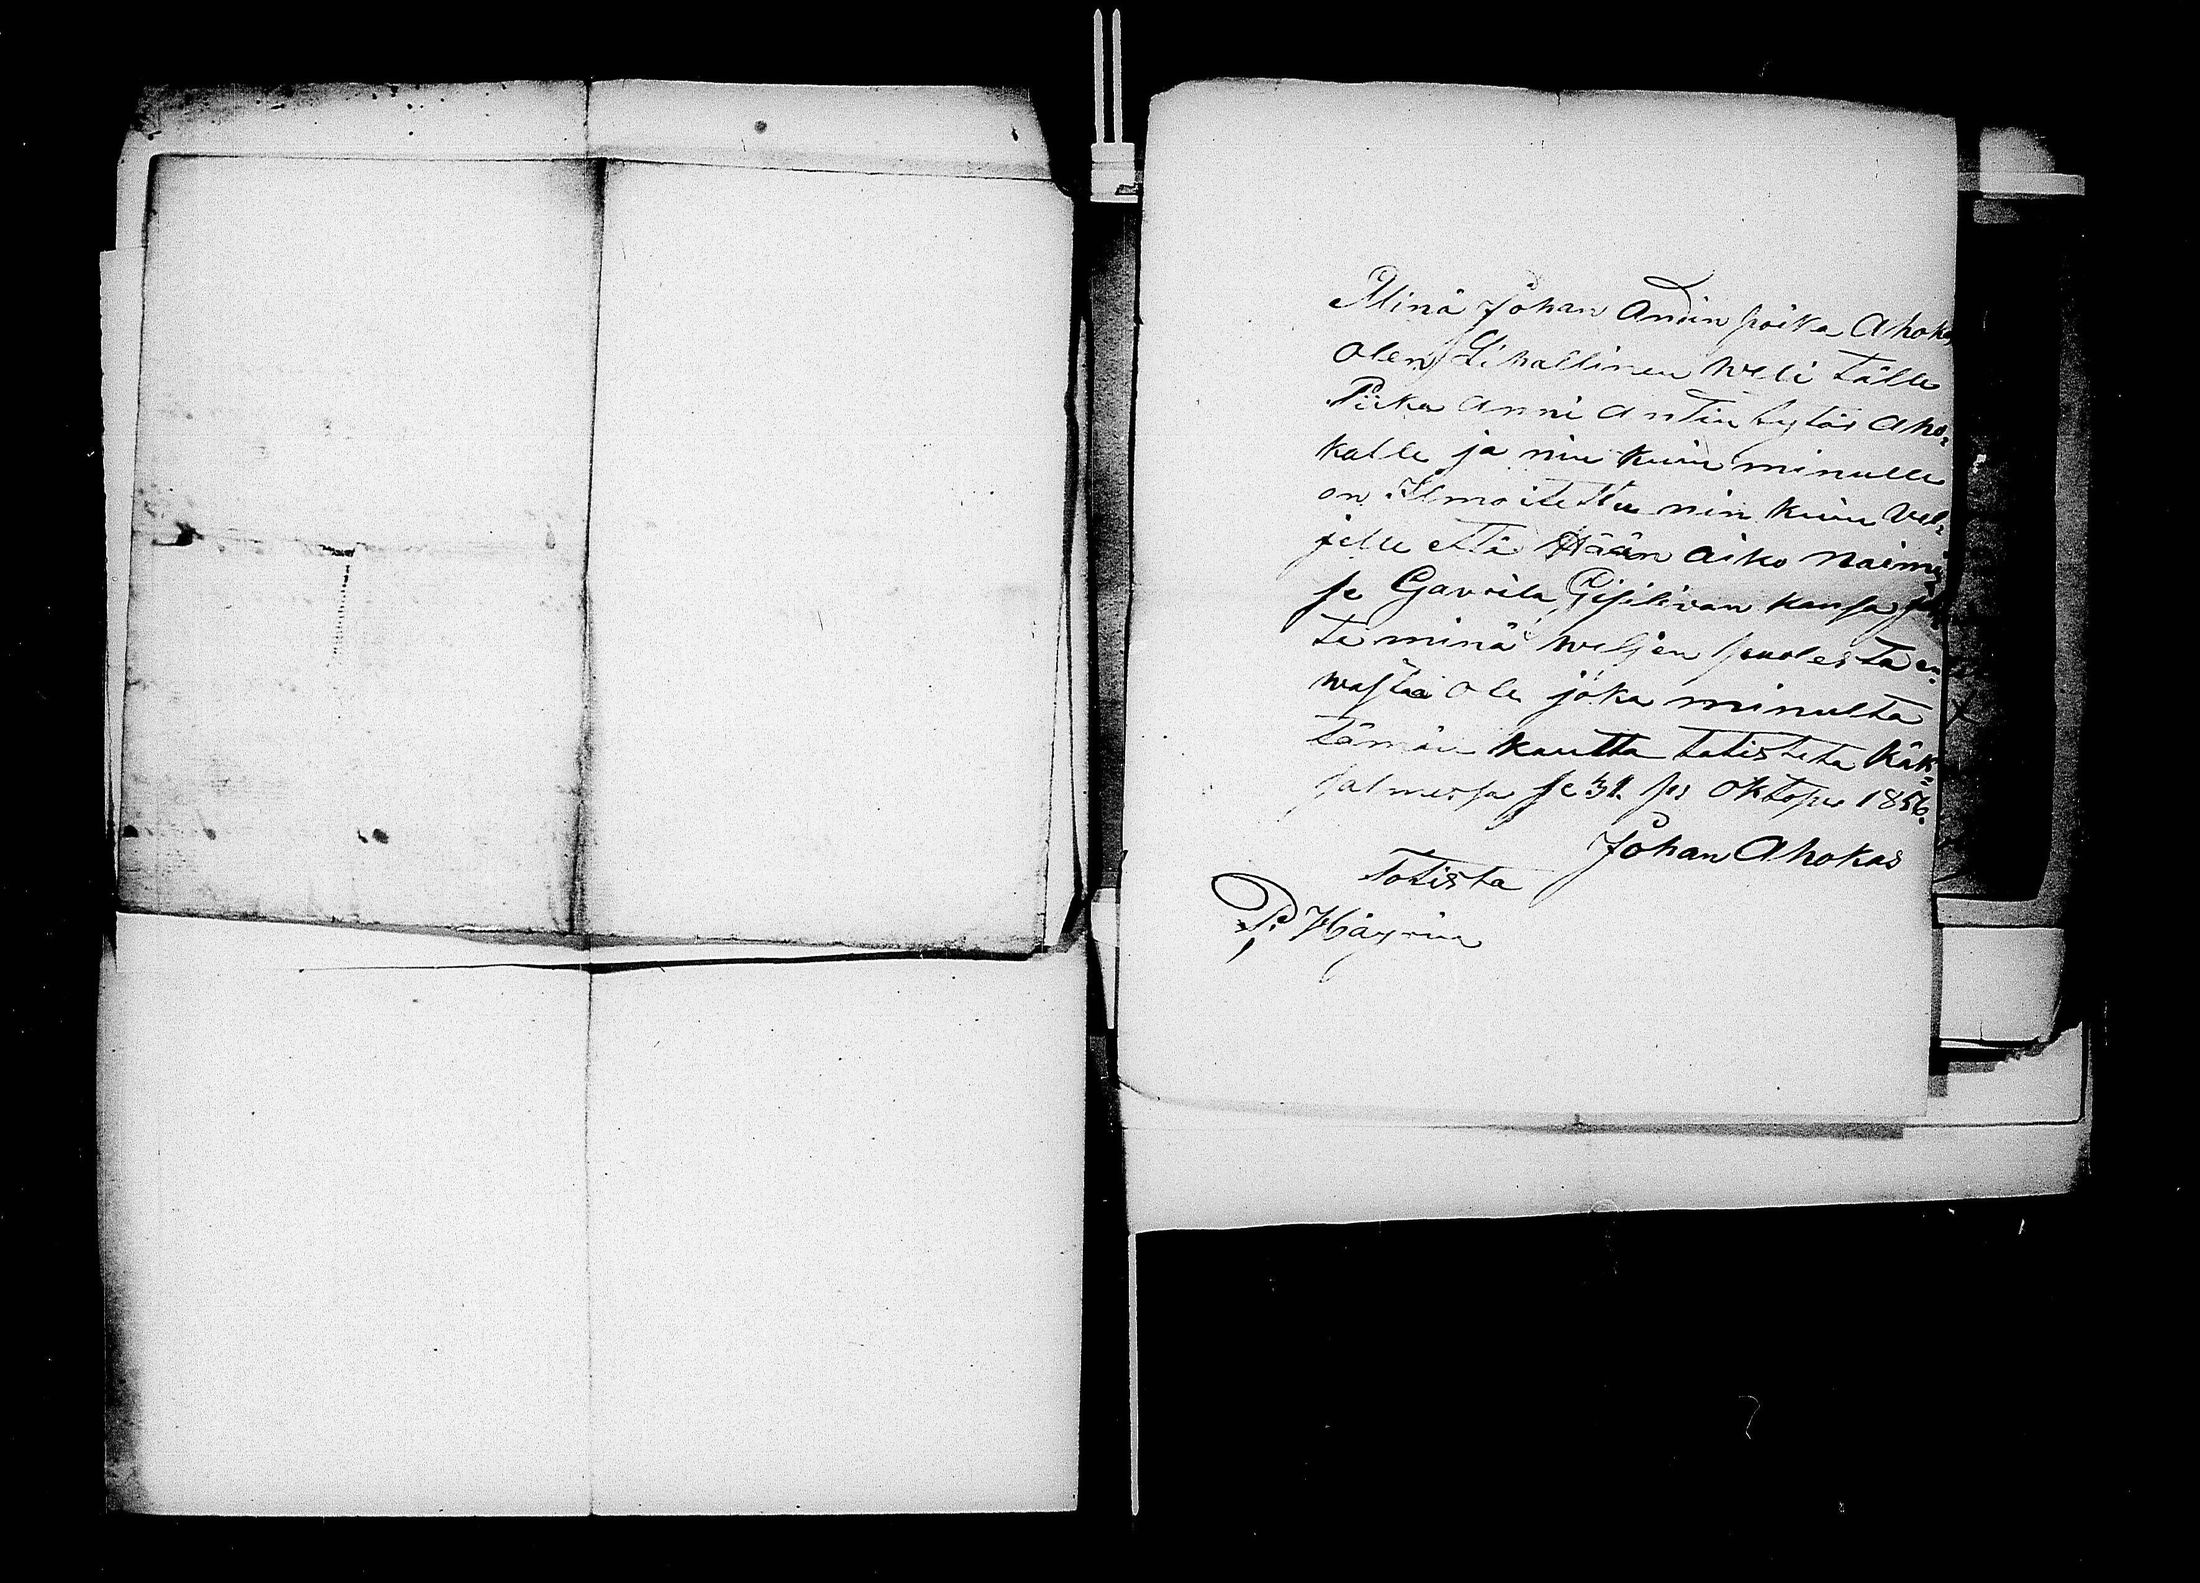 Minä Johan Antin poika Ahokas
olen Lihallinen weli tälle
Piika Anni Antin tytär Aho-
kalle ja niin kuin minulle
on Ilmoitettu nin kuin vel-
jelle että Hään aiko naimi
se Gavrila kansa
te minä weljen puolesta en
wastaa ole joka minulta
tämän kautta totisteta Käk-
salmessa se 31. ps Oktopr 1856.
Johan Ahokas
Totista
P. Häyrin